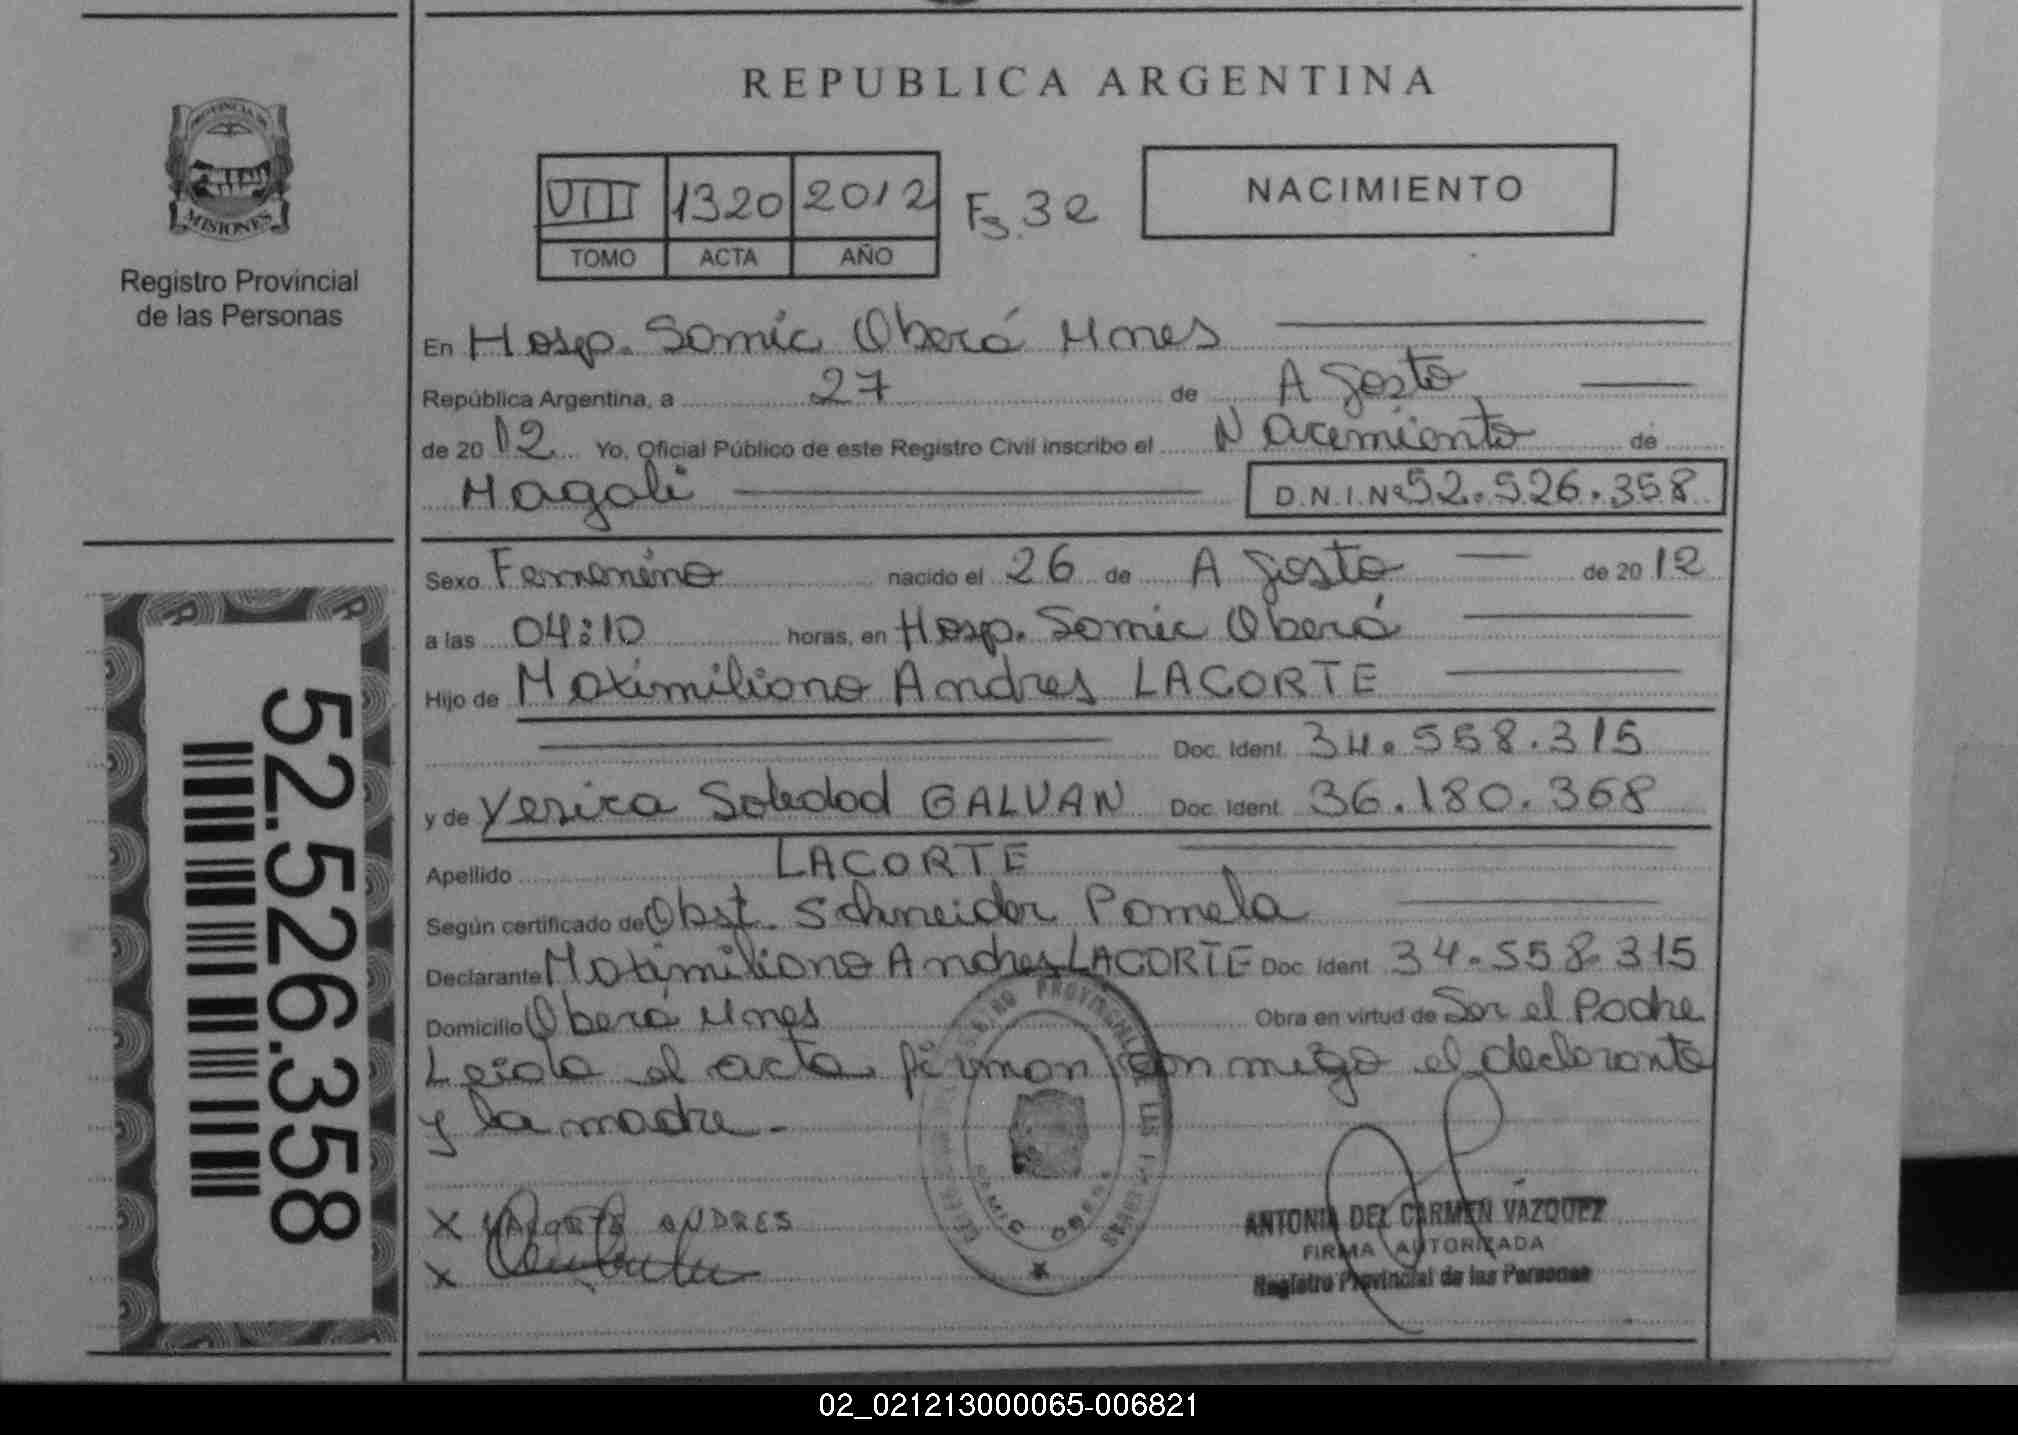 REPUBLICA ARGENTINA
PROVINCIA DE
MISIONES
Registro Provincial
de las Personas
VIII 1320 2012 Fs. 32
TOMO ACTA AÑO
NACIMIENTO
En Hosp. Samic Oberá Mnes
República Argentina, a 27 de Agosto
de 2012 Yo, Oficial Público de este Registro Civil inscribo el Nacimiento de
Magali D.N.I.Nº 52.526.358
Sexo Femenino nacido el 26 de Agosto de 2012
a las 04:10 horas, en Hosp. Samic Oberá
Hijo de Maximiliano Andres LACORTE
Doc. Ident. 34.558.315
y de Yesica Soledad GALVAN Doc. Ident. 36.180.368
Apellido LACORTE
Según certificado de Obst. Schneider Pamela
Declarante Maximiliano Andres LACORTE Doc. Ident. 34.558.315
Domicilio Oberá Mnes Obra en virtud de Ser el Padre
Leida el acta, firman conmigo el declarante
y la madre.-
X LACORTE ANDRES
X
PROVINCIAL DE LAS
SAMIC OBERA
ANTONIA DEL CARMEN VAZQUEZ
FIRMA AUTORIZADA
Registro Provincial de las Personas
52.526.358
02_021213000065-006821